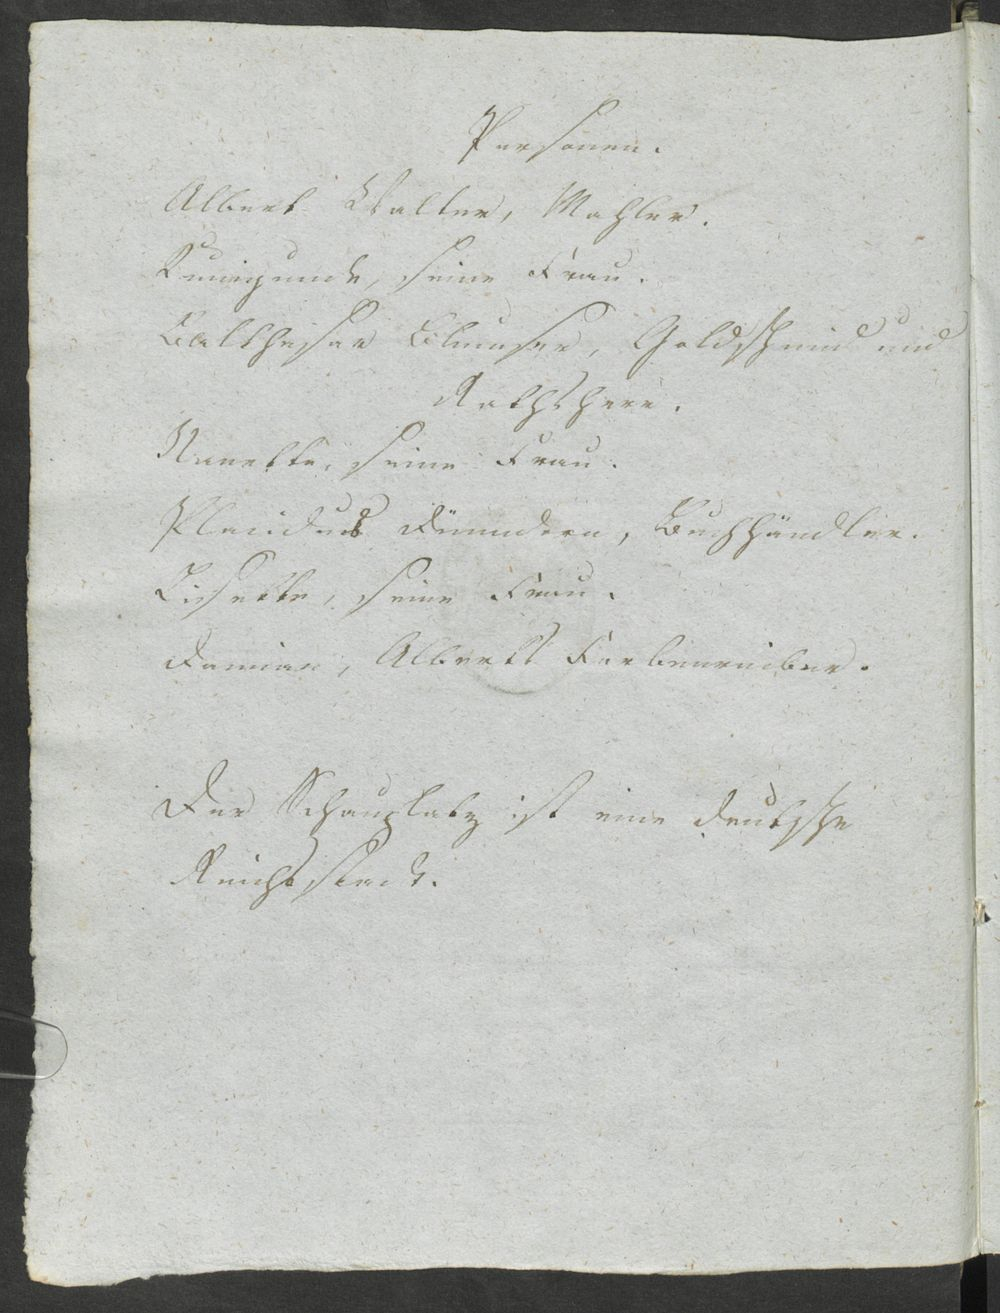 Personen.
Albert Walter, Mahler.
Kunigunde, seine Frau.
Balthasar Blumser, Goldschmid und
Rathsherr.
Nanette, seine Frau.
Placidus Dünndorn, Buchhändler.
Lisette, seine Frau.
Damian, Alberts Farbenreiber.
Der Schauplatz ist eine deutsche
Reichsstadt.